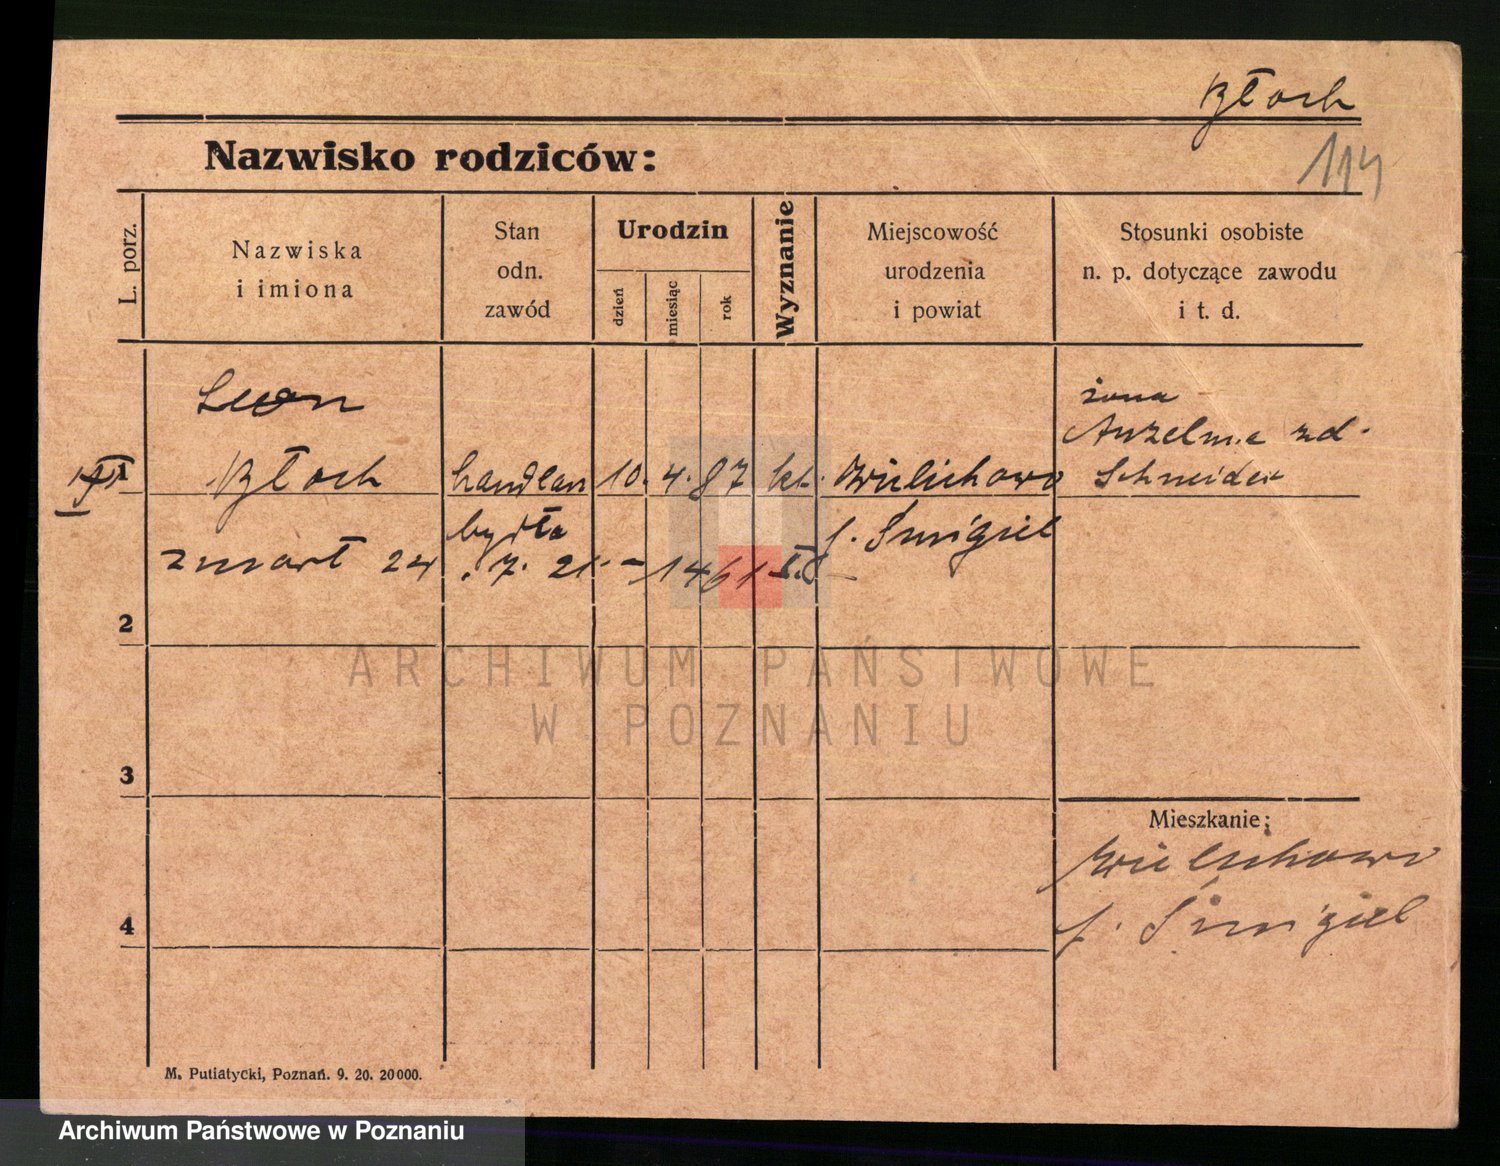 Błoch
114
Nazwisko rodziców:
L. porz.
Nazwiska
i imiona
Stan
odn.
zawód
Urodzin
dzień
miesiąc
rok
Wyznanie
Miejscowość
urodzenia
i powiat
Stosunki osobiste
n. p. dotyczące zawodu
i t. d.
Leon
Błoch
handlarz
bydła
10. 4. 87
kt.
Wielichowo
p. Śmigiel
żona
Anzelma zd.
Schneider
zmarł 24
. 7. 21. - 1461
2
3
4
Mieszkanie:
Wielichowo
p. Śmigiel
M. Putiatycki, Poznań. 9. 20. 20000.
ARCHIWUM PAŃSTWOWE
W POZNANIU
Archiwum Państwowe w Poznaniu